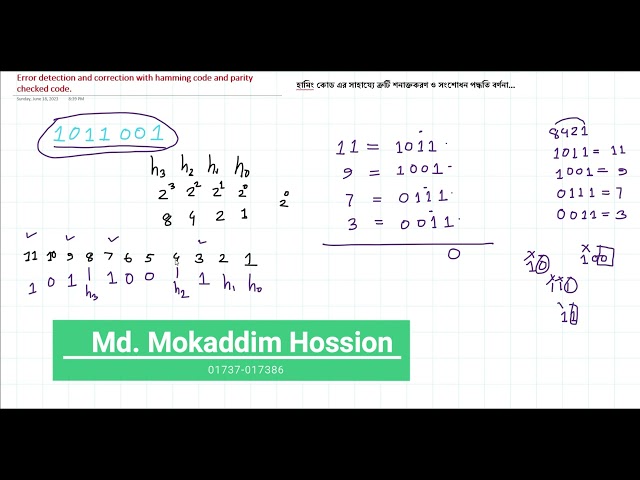 Error detection and correction with hamming code and parity
checked code.
Sunday, June 18, 2023 8:39 PM
হামিং কোড এর সাহায্যে ত্রুটি শনাক্তকরণ ও সংশোধন পদ্ধতি বর্ণনা...
1011 001
h₃ h₂ h₁ h₀
2³ 2² 2¹ 2⁰ 2⁰
8 4 2 1
11 10 9 8 7 6 5 4 3 2 1
1 0 1 1 0 0 1 h₁ h₀
h₃ h₂
11 = 1011
9 = 1001
7 = 0111
3 = 0011
0
8421
1011 = 11
1001 = 9
0111 = 7
0011 = 3
10 100
110
11
Md. Mokaddim Hossion
01737-017386